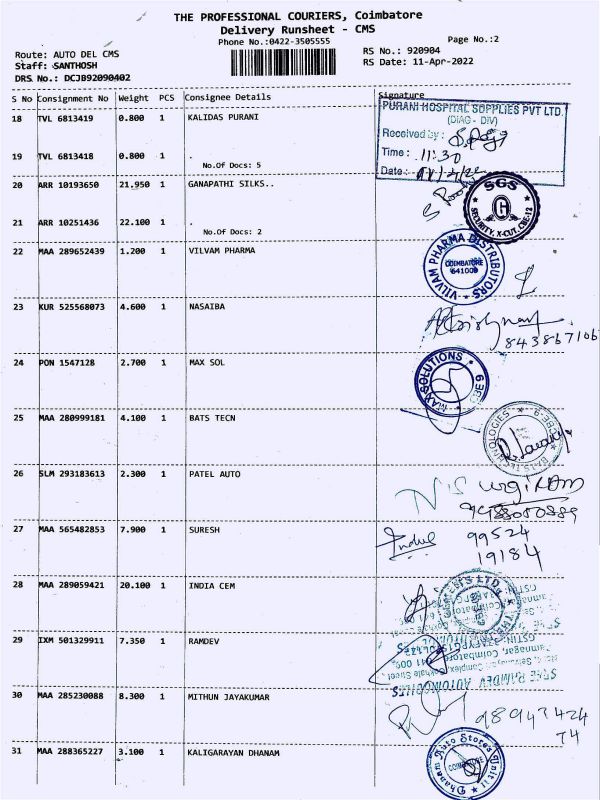 THE PROFESSIONAL COURIERS, Coimbatore
Delivery Runsheet - CMS
Phone No.:0422-3505555
Page No.:2
Route: AUTO DEL CMS
RS No.: 920904
Staff: SANTHOSH
RS Date: 11-Apr-2022
DRS No.: DCJB92090402
S No Consignment No Weight PCS Consignee Details Signature
18 TVL 6813419 0.800 1 KALIDAS PURANI
PURANI HOSPITAL SUPPLIES PVT LTD.
(DIAG - DIV)
Received by:
Time: 11:30
Date:
19 TVL 6813418 0.800 1 .
No.Of Docs: 5
20 ARR 10193650 21.950 1 GANAPATHI SILKS..
SGS
SECURITY, X-CUT, CBE-12
21 ARR 10251436 22.100 1 .
No.Of Docs: 2
22 MAA 289652439 1.200 1 VILVAM PHARMA
VILVAM PHARMA DISTRIBUTORS
COIMBATORE
23 KUR 525568073 4.600 1 NASAIBA
24 PON 1547128 2.700 1 MAX SOL
MAX SOLUTIONS
25 MAA 280999181 4.100 1 BATS TECN
BATS TECHNOLOGIES
26 SLM 293183613 2.300 1 PATEL AUTO
27 MAA 565482853 7.900 1 SURESH
99524
19184
28 MAA 289059421 20.100 1 INDIA CEM
29 IXM 501329911 7.350 1 RAMDEV
SHE RAMDEV AUTOMOBILES
30 MAA 285230088 8.300 1 MITHUN JAYAKUMAR
31 MAA 288365227 3.100 1 KALIGARAYAN DHANAM
Dhanam Auto Stores Unit II
COIMBATORE